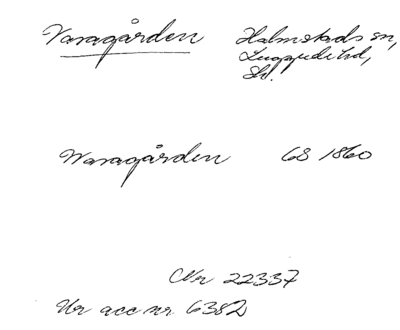 Varagården Halmstads sn,
Luggude hd,
Sk.
Waragården GS 1860
Nr 22337
Ur acc nr 6382